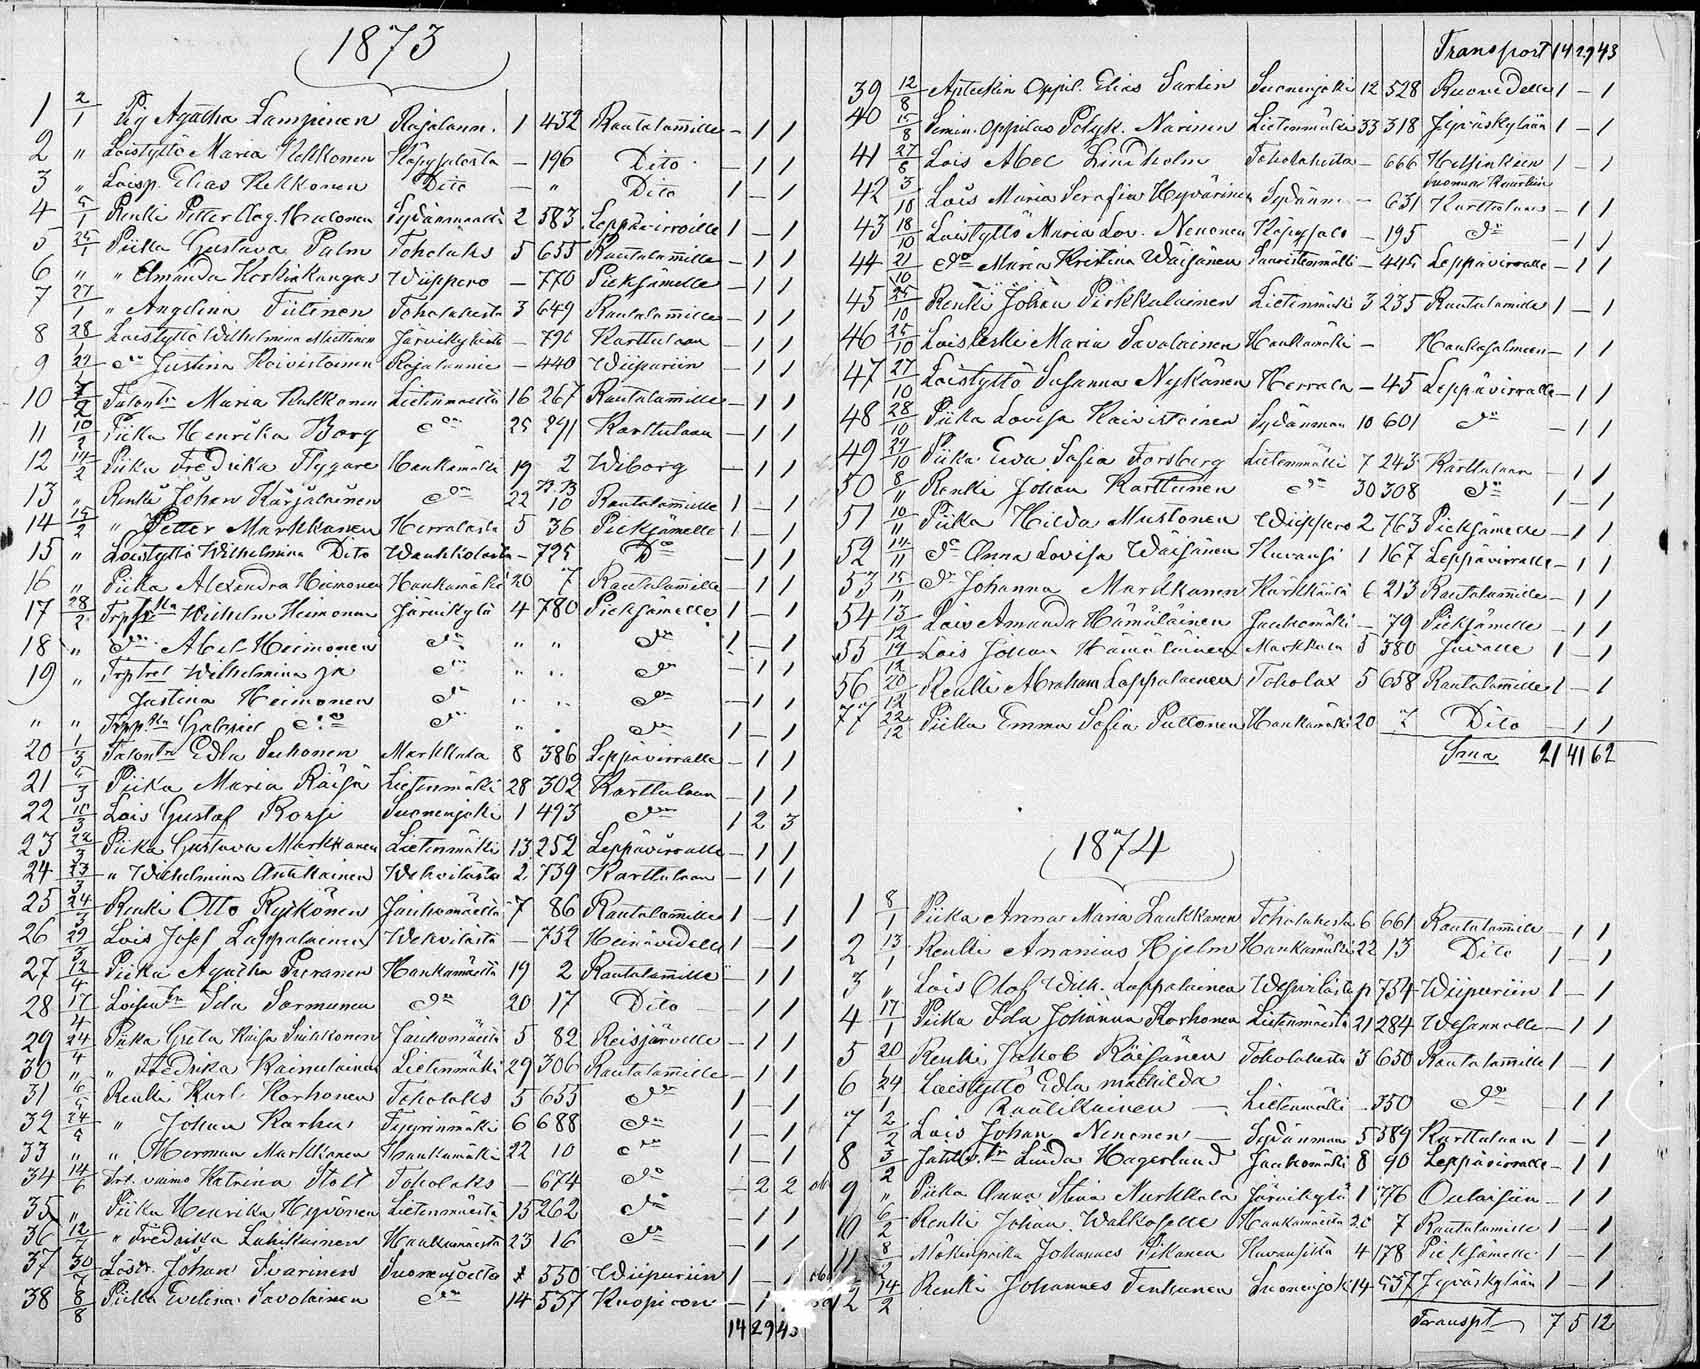 1873
1 2/1 Pig Agatha Lampinen Rajalann. 1 432 Rautalammille - 1 1
2 " Loistyttö Maria Kekkonen Käpysalosta - 196 Dito - 1 1
3 " Loisp. Elias Kekkonen Dito - " Dito 1 - 1
4 5/1 Renki Petter Aug. Halonen Sydänmaalta 2 583 Leppävirroille 1 - 1
5 25/1 Piika Gustava Palm Toholahs 5 655 Rautalammille - 1 1
6 " " Elmanda Koskinkangas Wiippero - 770 Pieksämelle - 1 1
7 27/1 " Angelina Tiitinen Toholahesta 3 649 Rautalammille - 1 1
8 28/1 Loistyttö Wilhelmina Miettinen Järvikylästä - 790 Karttulaan - 1 1
9 29/1 do Justina Koivistoinen Rajalannie - 440 Wiipuriin - 1 1
10 7/2 Talontr Maria Kukkonen Lietenmäeltä 16 267 Rautalammille - 1 1
11 10/2 Piika Henrika Borg do 25 291 Karttulaan - 1 1
12 14/2 Piika Fredrika Flygare Haukamäki 19 2 Wiborg - 1 1
13 " Renki Johan Kärjälainen do 22 10 Rautalammille 1 - 1
14 15/2 " Petter Markkanen Herralasta 5 36 Pieksämelle 1 - 1
15 " Loistyttö Wilhelmina Dito Wauhkolasta - 725 Do - 1 1
16 " Piika Alexandra Heimonen Haukamäki 20 7 Rautalammille - 1 1
17 28/2 Wilhelm Heimonen Järvikylä 4 780 Pieksämelle 1 - 1
18 " do Abel Heimonen do " " do 1 - 1
19 " Wilhelmina ja do " " do - 1 1
Justina Heimonen do " " do - 1 1
" " Gabriel do do " " do 1 - 1
20 1/3 Talontr Edla Suhonen Markkala 8 386 Leppävirralle - 1 1
21 5/3 Piika Maria Räisä Lietenmäki 28 302 Karttulaan - 1 1
22 10/3 Lois Gustaf Ronsi Suonenjoki 1 493 do 1 2 3
23 22/3 Piika Gustava Markkanen Lietenmäki 13 252 Leppävirralle - 1 1
24 23/3 " Wilhelmina Antikainen Wehvilästa 2 739 Karttulaan - 1 1
25 24/3 Renki Otto Ryikönen Jauhomäeltä 7 86 Rautalammille 1 - 1
26 29/3 Lois Josef Lappalainen Wehvilästä - 752 Heinävedelle 1 - 1
27 12/4 Piika Agatha Puranen Haukamäeltä 19 2 Rautalammille - 1 1
28 17/4 Ida Sormunen do 20 17 Dito - 1 1
29 24/4 Piika Greta Kaisa Pulkkonen Jauhomäeltä 5 82 Reisjärvelle - 1 1
30 " " Fredrika Raimelainen Lietenmäki 29 306 Rautalammille - 1 1
31 6/5 Renki Karl Korhonen Toholahs 5 655 do 1 - 1
32 24/5 " Johan Karhu Tyyrinmäki 6 688 do 1 - 1
33 " " Herman Markkanen Haukamäki 22 10 do 1 - 1
34 14/6 vaimo Katrina Stolt Toholahs - 674 do - 2 2
35 " Piika Henrika Hyvönen Lietenmäestä 15 262 do - 1 1
36 12/7 " Fredrika Luhikainen Haukamäestä 23 16 do - 1 1
37 30/7 Johan Ivarinen Suonenjoelta 550 Wiipuriin 1 - 1
38 8/8 Piika Evelina Savolainen do 14 537 Kuopioon - 1
14 29 43
Transport 14 29 43
39 12/8 Apteekin Oppil. Elias Sarlin Suonenjoki 12 528 Ruovedelle 1 - 1
40 15/8 Semin. Oppilas Polyk. Narinen Lietenmäki 33 318 Jyväskylään 1 - 1
41 27/8 Lois Abel Lindholm Toholahesta - 666 Helsinkiin 1 - 1
42 3/10 Lois Maria Serafia Hyvärinen Sydänm - 631 Karttulaan - 1 1
43 18/10 Loistyttö Maria Lov. Nenonen Käpysalo - 195 do - 1 1
44 21/10 do Maria Kristina Wäisänen - 445 Leppävirralle - 1 1
45 25/10 Renki Johan Pirkkalainen Lietenmäki 3 235 Rautalammille 1 - 1
46 25/10 Loisleski Maria Savolainen Haukamäki - Hankasalmeen - 1 1
47 27/10 Loistyttö Susanna Nykänen Herrala - 45 Leppävirralle - 1 1
48 28/10 Piika Lovisa Koivistoinen Sydänmaa 10 601 do - 1 1
49 29/10 Piika Eva Sofia Forsberg Lietenmäki 7 243 Karttulaan - 1 1
50 8/11 Renki Johan Karttunen do 30 308 do 1 - 1
51 10/11 Piika Hilda Mustonen Wiippero 2 763 Pieksämelle - 1 1
52 14/11 do Anna Lovisa Wäisänen Kuvansi 1 167 Leppävirralle - 1 1
53 15/11 do Johanna Markkanen Kärkkäälä 6 213 Rautalammille - 1 1
54 13/12 Lois Amanda Hämäläinen Jauhomäki - 79 Pieksämelle - 1 1
55 19/12 Lois Johan Hämäläinen Markkala 5 380 Juvalle 1 - 1
56 20/12 Renki Abraham Lappalainen Toholax 5 658 Rautalammille 1 - 1
77 22/12 Piika Emma Sofia Pullonen Haukamäki 20 7 Dito 1 1
Sma 21 41 62
1874
1 8/1 Piika Anna Maria Laukkanen Toholahesta 6 661 Rautalammille - 1 1
2 13/1 Renki Ananius Hjelm Haukamäki 22 13 Dito 1 - 1
3 " Lois Olof Wilh. Lappalainen 754 Wiipuriin 1 - 1
4 17/1 Piika Ida Johanna Korhonen Lietenmäestä 21 284 Wesannolle - 1 1
5 20/1 Renki Jakob Räisänen Toholahesta 3 650 Rautalammille 1 - 1
6 24/1 Loistyttö Edla Mathilda
Raatikainen - Lietenmäki - 350 do - 1 1
7 2/2 Lois Johan Nenonen - Sydänmaa 5 589 Karttulaan 1 - 1
8 3/2 Linda Hagerlund Jauhomäki 8 90 Leppävirralle - 1 1
9 " Piika Anna Stina Markkala Järvikylä 1 776 Oulaisiin - 1 1
10 6/2 Renki Johan Walkosalle Haukamäeltä 20 7 Rautalamille 1 - 1
11 8/2 Mäkinpoika Johannes Pikanen Kuvansista 4 178 Pieksämelle 1 - 1
12 14/2 Renki Johannes Tenhunen Suonenjok 14 537 Jyväskylään 1 - 1
Transpt 7 5 12